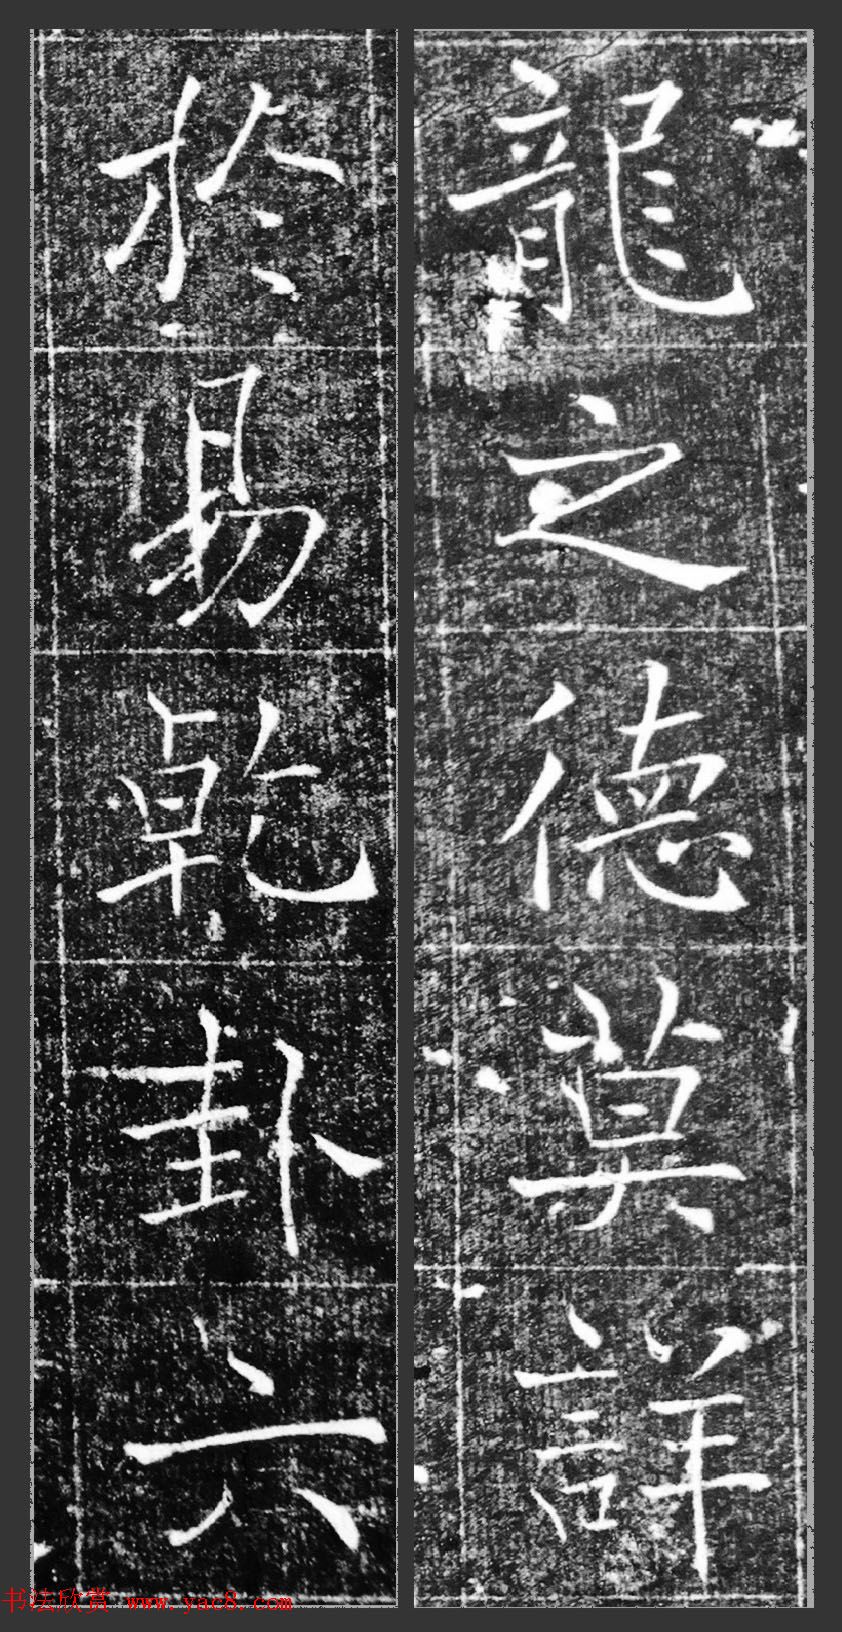 龍之德莫詳
於易乾卦六
书法欣赏 www.yac8.com